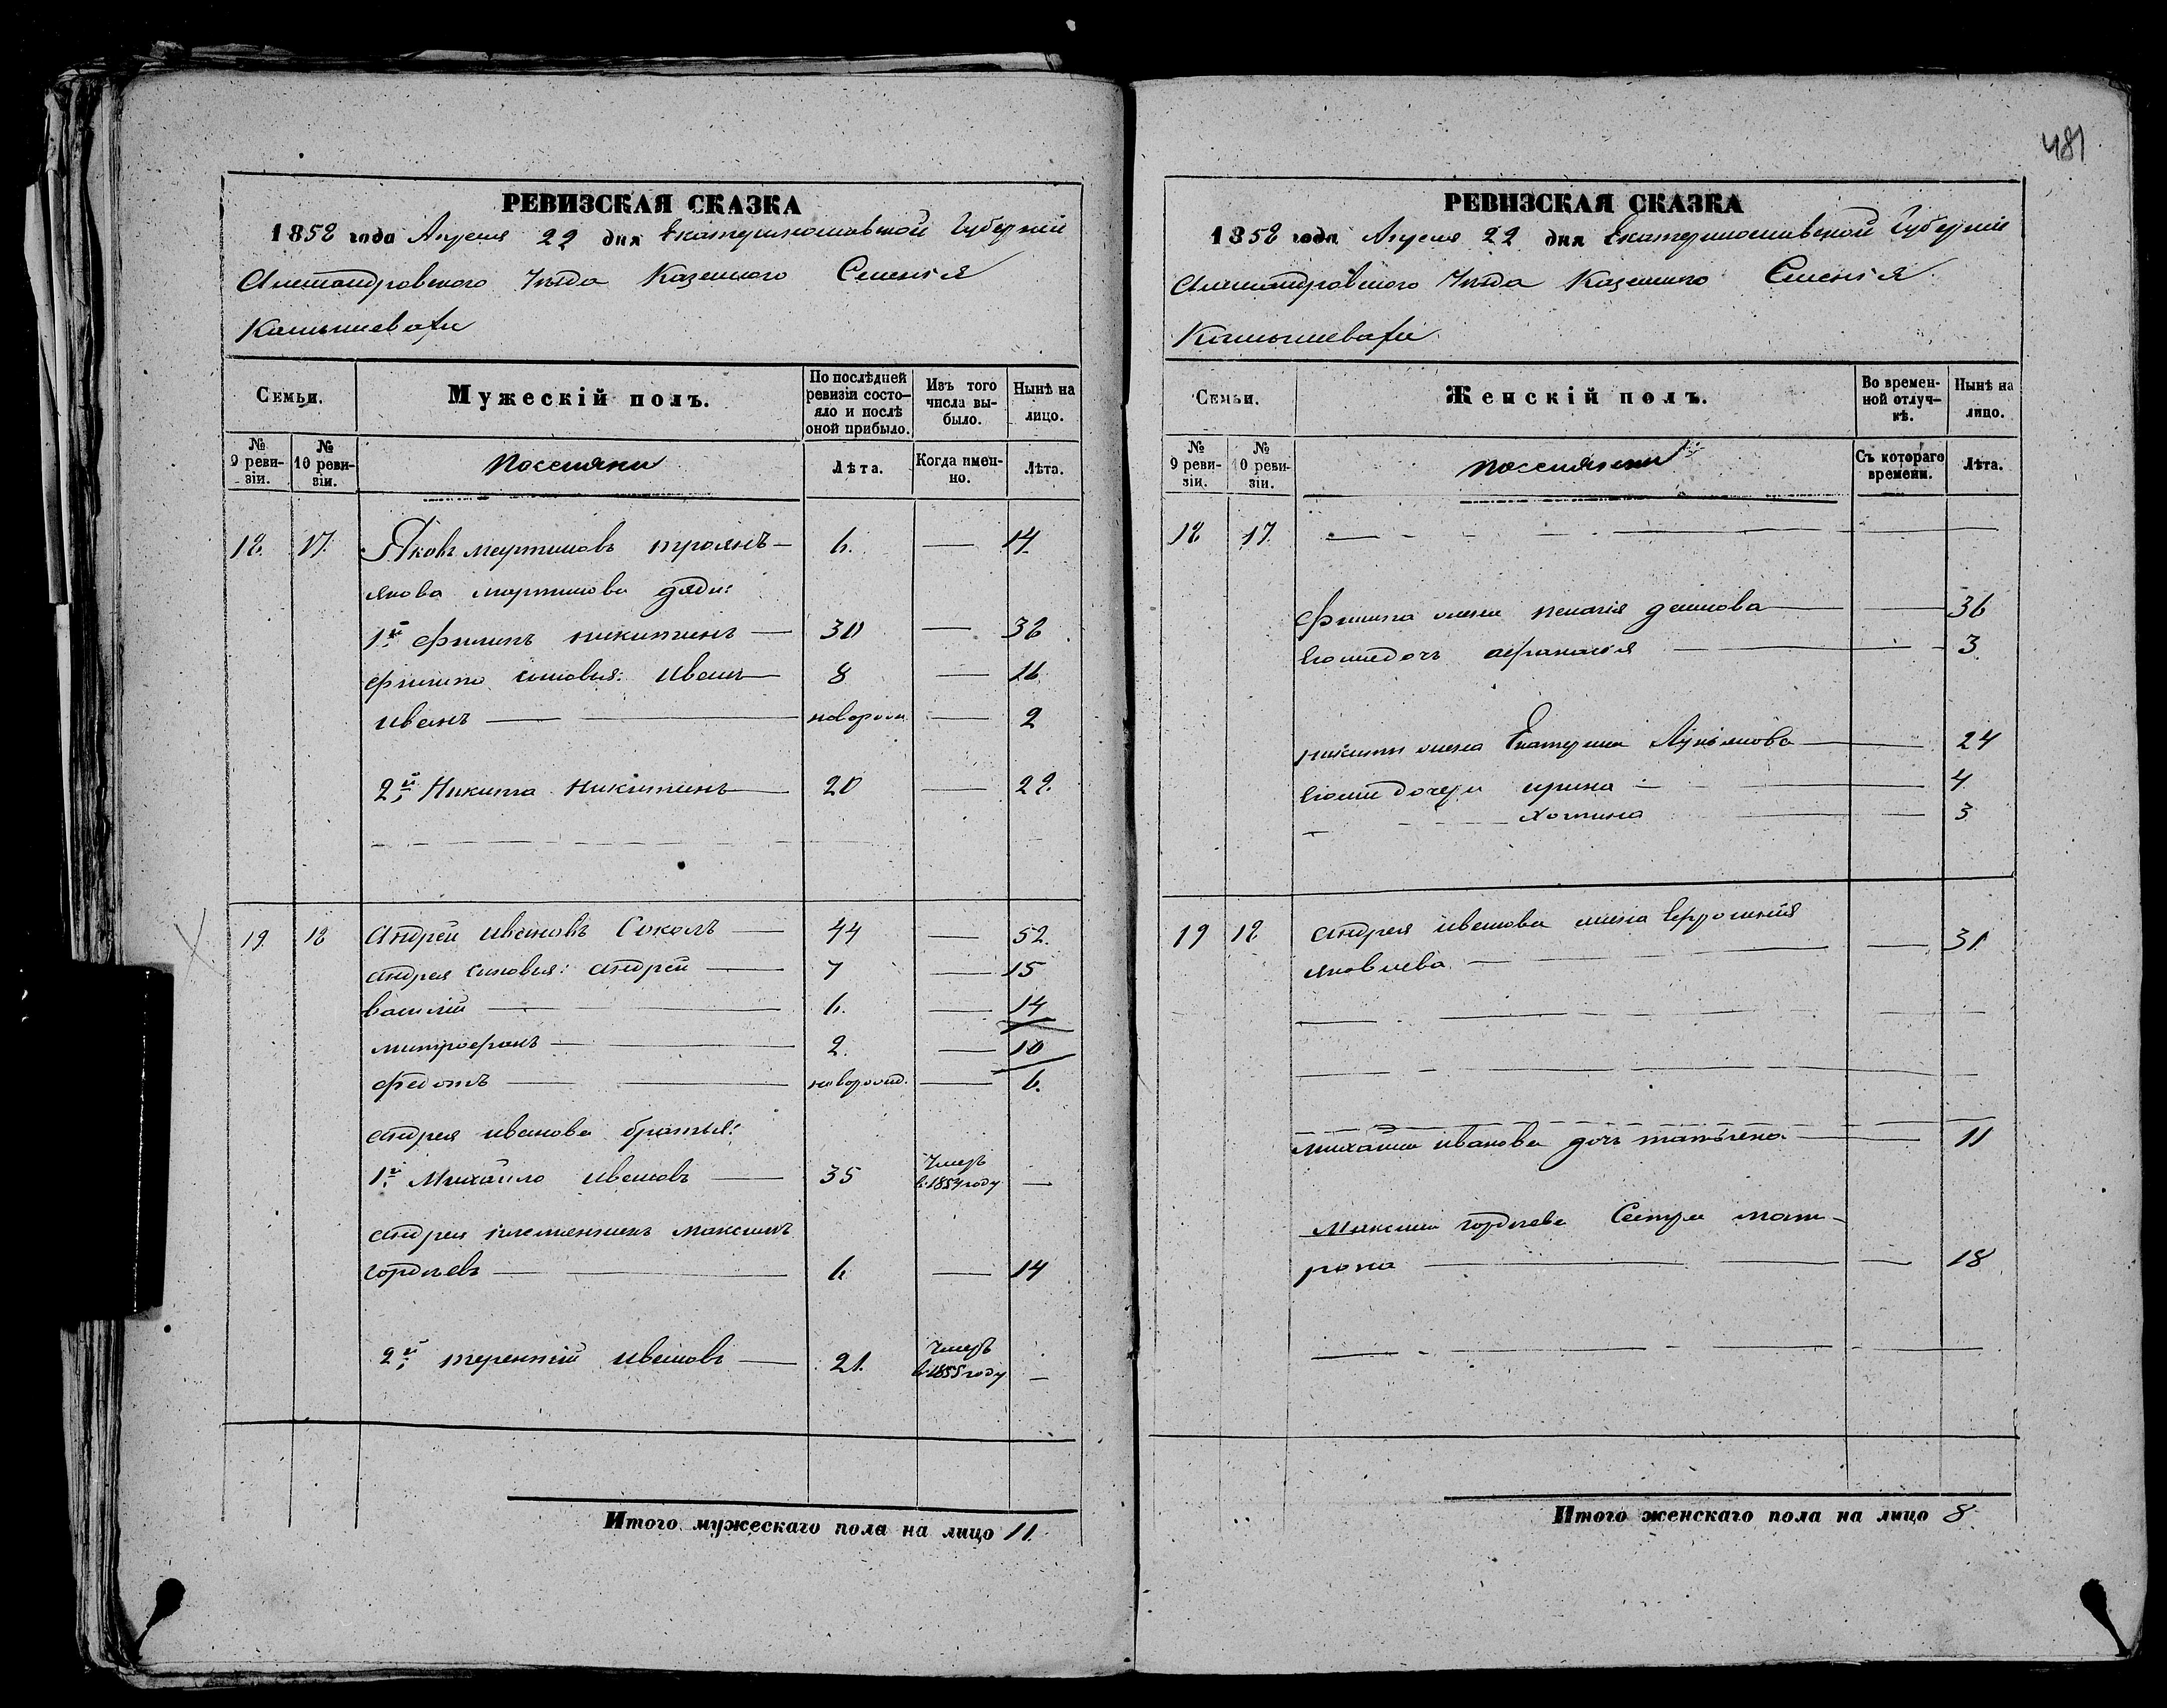 РЕВИЗСКАЯ СКАЗКА
1858 года Апреля 22 дня Екатеринославской Губерніи
Александровскаго Уезда Казенного Селенія
Камышевахи
Семьи.
Мужескій полъ.
По послѣдней ревизіи состояло и послѣ оной прибыло.
Изъ того числа выбыло.
Нынѣ на лицо.
№ 9 ревизіи.
№ 10 ревизіи.
Поселяни
Лѣта.
Когда именно.
Лѣта.
18. 17. Яковъ мартиновъ троянъ — 6. — 14.
якова мартинова дяди:
1й филипъ никитинъ — 30 — 38
филипа сыновья: Иванъ — 8 — 16
иванъ — новорож — 2
2й Никита никитинъ — 20 — 28.
19. 18 Андрей ивановъ Соколъ — 44 — 52.
андрея сыновья: андрей — 7 — 15
василій — 6. — 14
митрофанъ — 2. — 10
федотъ — новорожд. — 6.
андрея иванова братья:
1й Михайло ивановъ — 35 Умеръ в. 1854 году —
андрея племянникъ максимъ
гордѣевъ — 6 — 14
2й терентій ивановъ — 21. Умеръ в. 1855 году —
Итого мужескаго пола на лицо 11.
481
РЕВИЗСКАЯ СКАЗКА
1858 года Апреля 22 дня Екатеринославской Губерніи
Александровскаго Уезда Казенного Селенія
Камышевахи
Семьи.
Женскій полъ.
Во временной отлучкѣ.
Нынѣ на лицо.
№ 9 ревизіи.
№ 10 ревизіи.
поселянки
Съ котораго времени.
Лѣта.
18 17.
филипа жена пелагія — 36
его дочь афанасія — 3
никиты жена Екатерина Лукьянова — 24
его дочери ирина — 4
3
19 18 андрея иванова жена
яковлева — 31
михаила иванова дочь татьяна — 11
Максима гордѣева Сестра мат-
рона — 18
Итого женскаго пола на лицо 8.